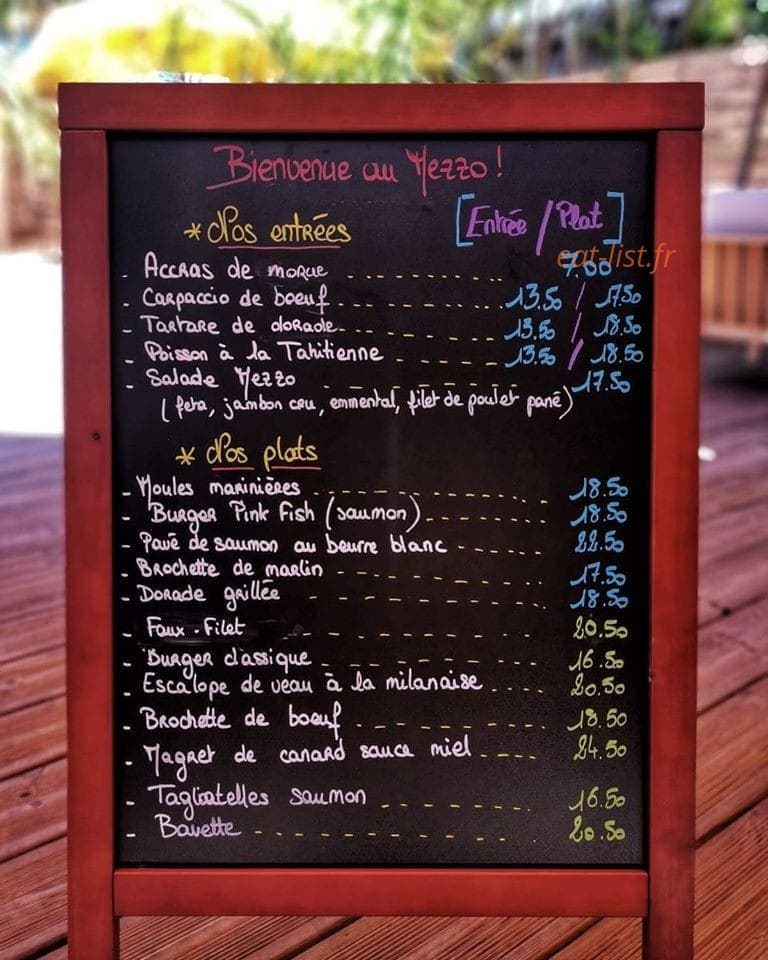 Bienvenue au Mezzo !
* Nos entrées [Entrée / Plat]
eat-list.fr
- Accras de morue .............. 7.00
- Carpaccio de boeuf ........ 13.50 / 17.50
- Tartare de dorade ........ 13.50 / 18.50
- Poisson à la Tahitienne ...... 13.50 / 18.50
- Salade Mezzo ........ 17.50
(feta, jambon cru, emmental, filet de poulet pané)
* Nos plats
- Moules marinières ........ 18.50
- Burger Pink Fish (saumon) ........ 18.50
- Pavé de saumon au beurre blanc ...... 22.50
- Brochette de marlin ........ 17.50
- Dorade grillée ........ 18.50
- Faux-Filet ........ 20.50
- Burger classique ........ 16.50
- Escalope de veau à la milanaise .... 20.50
- Brochette de boeuf ........ 18.50
- Magret de canard sauce miel .... 24.50
- Tagliatelles saumon ........ 16.50
- Bavette ........ 20.50